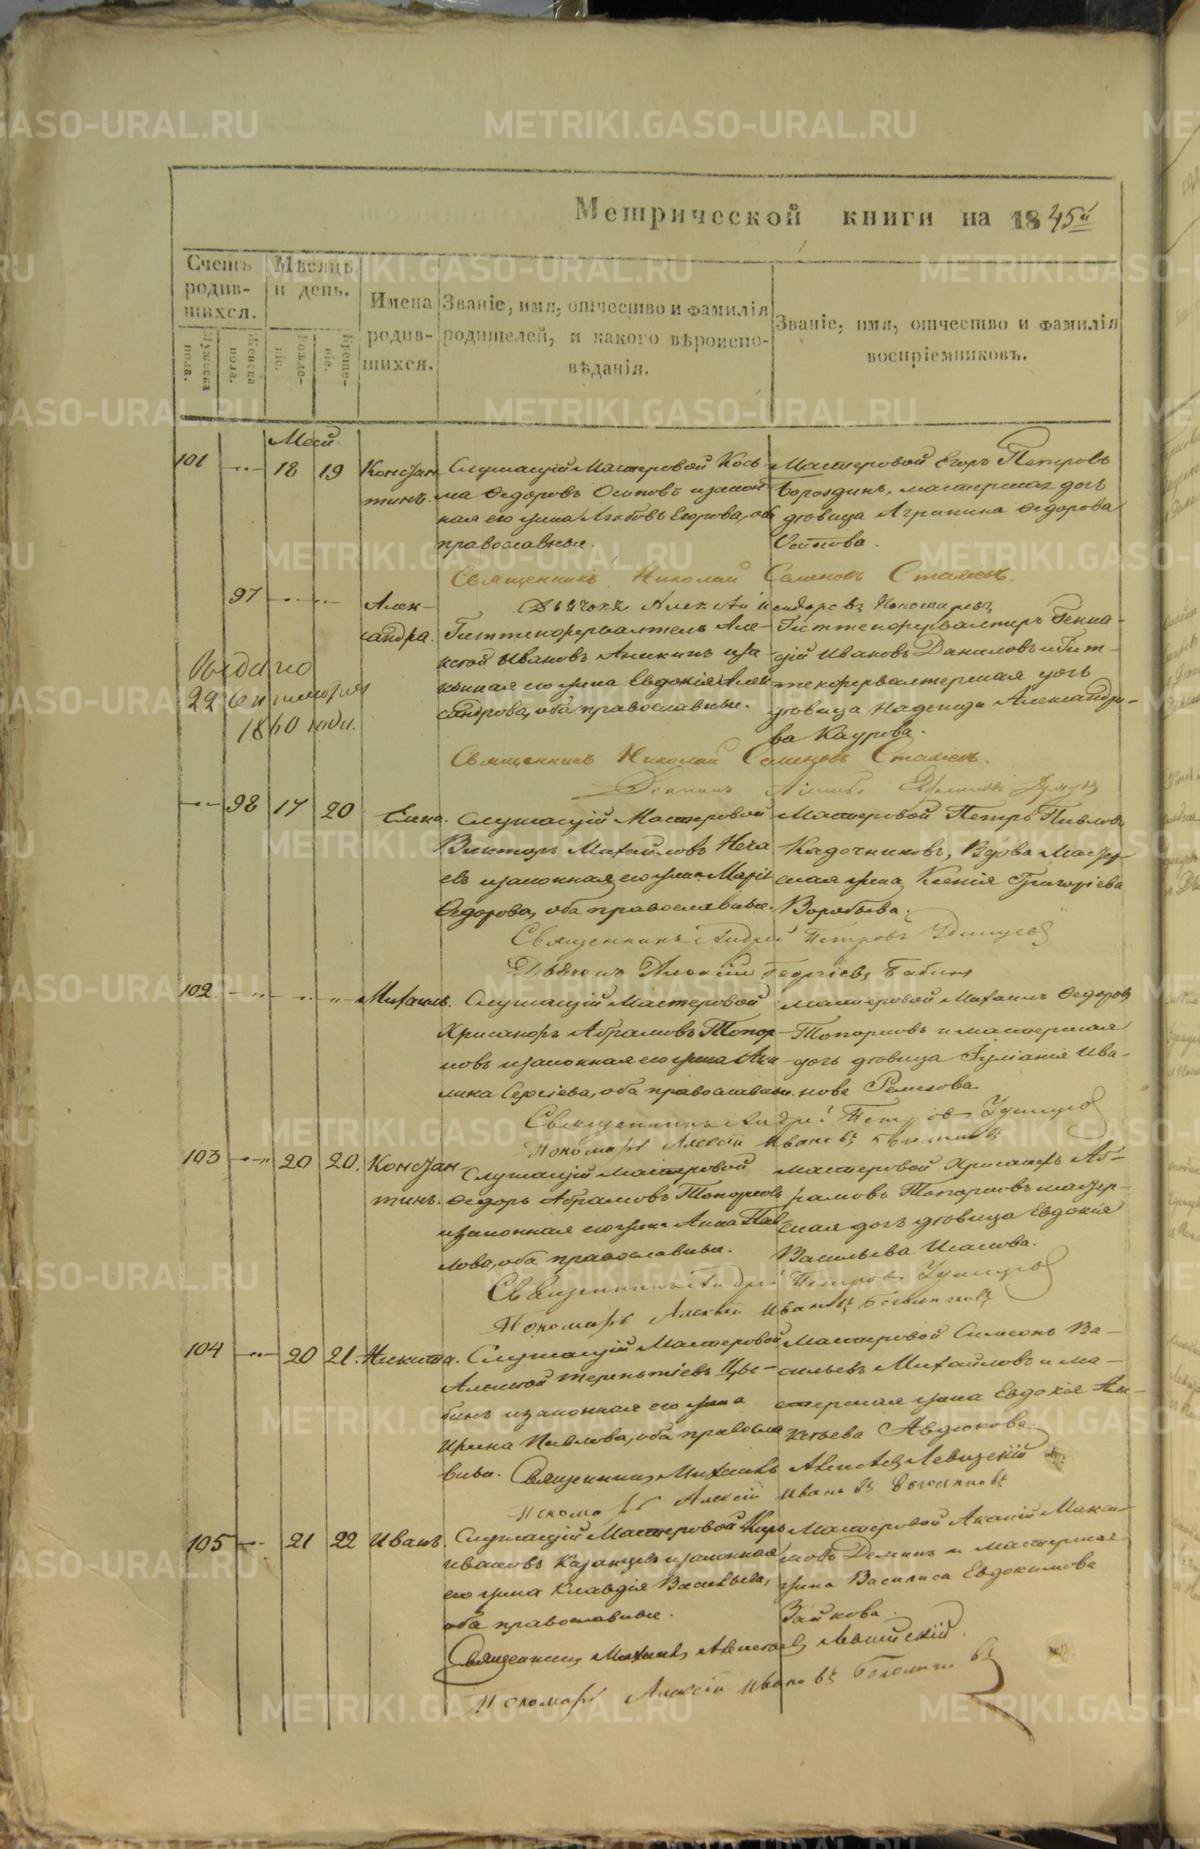 Метрической книги на 1845й
Счетъ родив-шихся.
Мужеска пола.
Женска пола.
Мѣсяцъ и день.
Рожде-ніе.
Креще-ніе.
Имена родив-шихся.
Званіе, имя, отчество и фамилія
родителей, и какого вѣроиспо-
вѣданія.
Званіе, имя, отчество и фамилія
воспріемниковъ.
Май
101 18 19 Констан
тинъ.
Служащій Мастеровой Косъ
ма Ѳедоровъ Осиповъ и закон
ная его жена Любовь Егорова, оба
православные.
Мастеровой Егоръ Петровъ
Бороздинъ, мастерская дочь
дѣвица Агрипина Ѳедорова
Осипова.
Священникъ Николай
97 Алек-
сандра.
Гиттенфервалтель Але-
ксѣй Ивановъ Аникинъ и за-
конная его жена Евдокія Алек
сандрова, оба православные.
Гиттенфервалтеръ Генна-
дій Ивановъ Даниловъ и Гит-
тенфервалтерская дочь
дѣвица Надежда Александро-
ва Каурова.
Выдано
22 Сентября
1860 года.
Священникъ Николай
98 17 20 Елена.
Служащій Мастеровой
Викторъ Михайловъ Неча
евъ и законная его жена Марія
Ѳедорова, оба православные.
Мастеровой Петръ Павловъ
Кадочниковъ, Вдова Мастер
ская жена Ксенія Григоріева
Воробьева.
Священникъ Андрей Петровъ Удинцовъ
Дьячекъ Алексій Георгіевъ Бабинъ
102 Михаилъ.
Служащій Мастеровой
Хрисанфъ Абрамовъ Топор
ковъ и законная его жена Аки
лина Сергіева, оба православные.
Мастеровой Михаилъ Ѳедоровъ
Топорковъ и мастерская
дочь дѣвица Іуліанія Ива-
нова Ремезова.
Священникъ Андрей Петровъ Удинцовъ
Пономарь Алексій Ивановъ
103 20 20. Констан
тинъ.
Служащій мастеровой
Ѳедоръ Абрамовъ Топорковъ
и законная его жена Анна Пав
лова, оба православные.
Мастеровой Хрисанфъ Аб-
рамовъ Топорковъ мастер-
ская дочь дѣвица Евдокія
Васильева Исакова.
Священникъ Андрей Петровъ Удинцовъ
Пономарь Алексій Ивановъ
104 20 21. Никита.
Служащій Мастеровой
Алексѣй Терентіевъ Цы-
бинъ и законная его жена
Ирина Павлова, оба правосла
вные.
Мастеровой Симеонъ Ва-
сильевъ Михайловъ и ма-
стерская жена Евдокія Але-
ксѣева Авдюкова.
Священникъ Михаилъ Алексіевъ Левицскій
Пономарь Алексій Ивановъ
105 21 22 Иванъ.
Служащій Мастеровой Киръ
Ивановъ Казанцевъ и законная
его жена Клавдія Васильева,
оба православные.
Мастеровой Акакій Макси-
мовъ Деминъ и мастерская
жена Василиса Евдокимова
Зайкова.
Священникъ Михаилъ Алексіевъ Левицскій.
Пономарь Алексій Ивановъ
METRIKI.GASO-URAL.RU